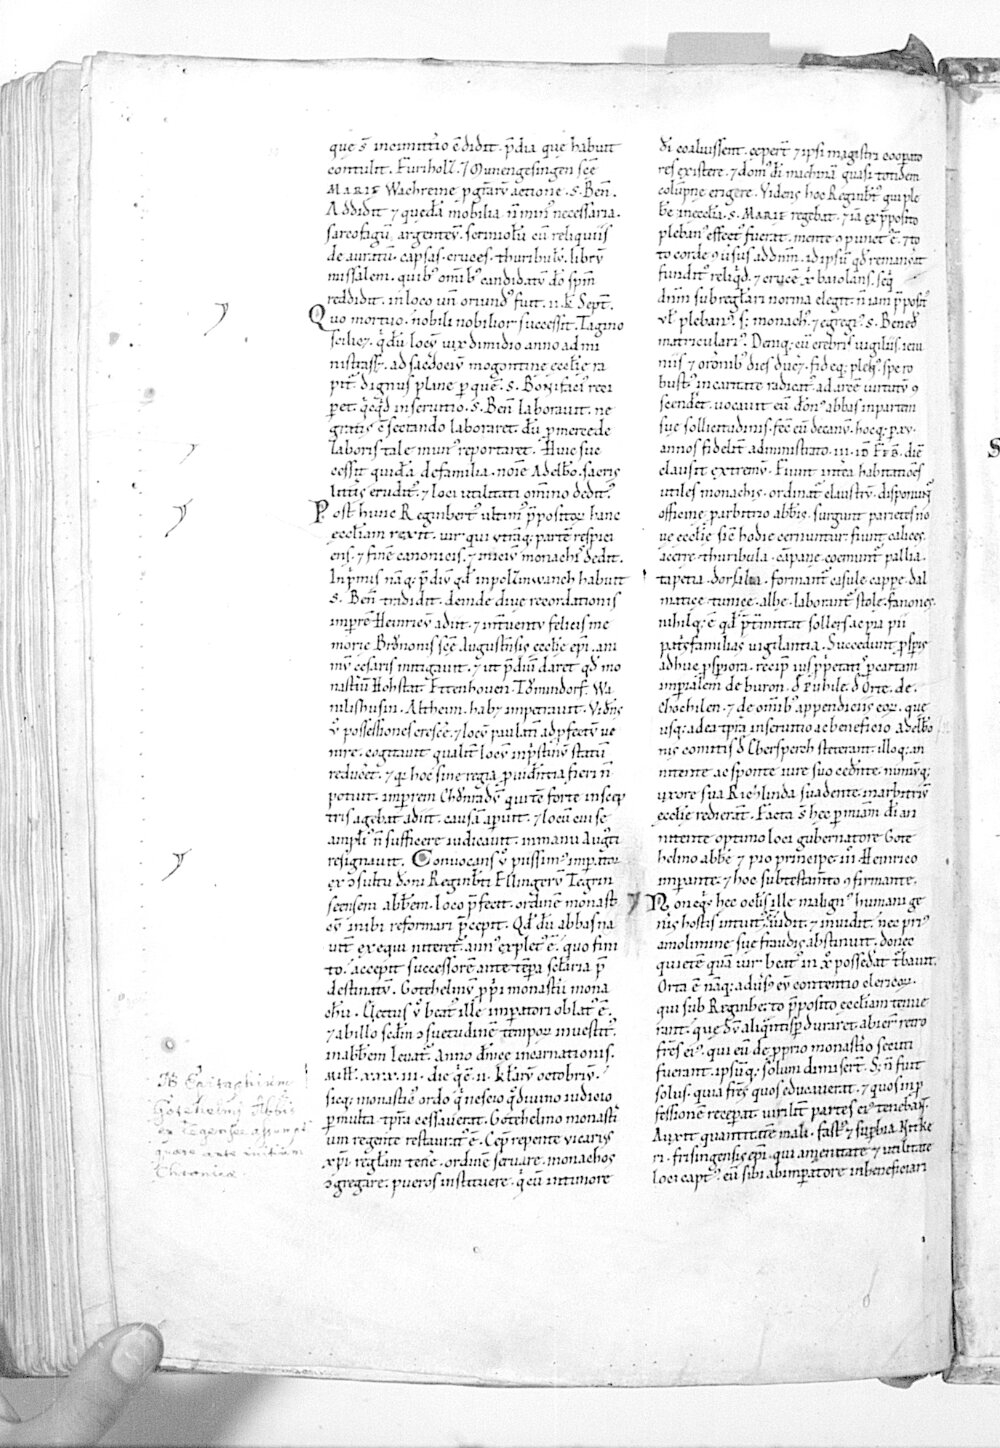 que s̄ incimitt̄io c̄didit. p̄dia que habuit
contulit. Furiholz. ⁊ Munengesingen scē
MARIE Wachreine p ḡrarū actione. s. Beñ.
Addidit ⁊ quedā mobilia n̄ min' necessaria.
sarcofagū argenteū. scriniolū cū reliquiis
de auratū. capsas. cruces. thuribulū. librū
missalem. quib' omīb' candidatū dō spm̄
reddidit. in loco un̄ oriund' fuit. ii. k̄. Sept̄.
Quo mortuo. nobili nobilior successit. Tagino
scilic⁊. q̇ dū locū uix dimidio anno admi
nistrass⁊. ad sac̄dociū mogontine eccłie ra
pit'. dignus plane p quē. s. Bonifaci' reci
p̄et. q̇cq̇d in seruitio. s. Beñ laborauit. ne
gratis ē sectando laboraret. dū p mercede
laboris tale mun' reportaret. Huic suc
cessit quidā de familia. noīe Adelbo. sacris
litt̄is erudit'. ⁊ loci utilitati om̄ino dedit'.
Post hunc Reginbert' ultim' p̄positor̄ hanc
eccłiam rexit. uir qui utrāq; partē respici
ens. ⁊ finē canonicis. ⁊ iniciū monachis dedit.
Inp̄mis nāq; p̄diū qd̄ in pollinwanch habuit
s. Beñ tradidit. deinde diue recordationis
imp̄rē Heinricū adiit. ⁊ int̄uentu felicis me
morie Brōnonis scē Augustn̄sis eccłie epī. ani
mū cesaris mitigauit. ⁊ ut p̄diū daret qd̄ mo
nastīū Hohstat. Ettenhouen. Tōmindorf. Wa
milishusin. Altheim. hab⁊ impetrauit. Vidn̄s
ū possessiones crescē. ⁊ locū paulati ad pfectū ue
nire. cogitauit qualit̄ locū in p̄stinū statū
reducet. ⁊ q̇ hoc sine regia p̄uidn̄tia fieri n̄
potuit. imp̄rem Chōnradū qui tē forte in seq
tris agebat adiit. causā apuit. ⁊ locū cui se
ampli' n̄ sufficere iudicauit. in manū Aug̃ti
resignauit. Conuocans ū piissim' imp̄ator
ex ↄsultu dōni Reginb̄ti Ellingerū Tegrin
seensem abb̄em. loco p̄fecit. ordinē monast
cū inibi reformari p̄cepit. Qd̄ dū abbas na
uit̄ exequi niteret'. ann' explet' ē. quo fini
to. accepit successorē ante tēpa sclaria p̄
destinatū. Gotehelmū p̄pi monast̄ii mona
chū. Electus ū beat' ille imp̄atori oblat' ē.
⁊ ab illo sedm̄ ↄsuetudinē tempor̄ inuestit'.
in abb̄em leuat'. anno dn̄ice incarnationis.
Mill'. xxx. iii. die q̇ ē ii. kłarū octobriū.
sicq; monastic' ordo q̇ nescio q̇ diuino iudicio
p multa tp̄ra cessauerat. Gotehelmo monast̄i
um regente restaurat' ē. Cep̄ repente uicariꝰ
xp̄i reglam tenē. ordinē seruare. monachos
ↄgregare. pueros instituere. q̇ cū in timore
dī coaluissent. cepert̄ ⁊ ipsi magistri coop̄ato
res existere. ⁊ dom' dī machinā quasi totidem
colūpne erigere. Videns hoc Reginb̄t' qui ple
bē in eccłia. s. MARIE regebat. ⁊ iā ex p̄posito
pleban' effect' fuerat. mente ↄpunct' ē. ⁊ to
to corde ↄuersus ad dnm̄. id ipsū qd̄ remanēat
fundit' reliq̇d. ⁊ crucē xp̄i baiolans. seq̇
dnm̄ sub regłari norma elegit. n̄ iam p̄posit'
ut̄ pleban'. s; monach'. ⁊ egregi' s. Bened'
matriculari'. Deniq; cū crebris uigiliis. ieiu
niis ⁊ orōnib' dies duc⁊. fide q; plen'. spe ro
bust'. in caritate radicat'. ad arcē uirtutū ↄ
scendet. uocauit eū dōn' abbas in partem
sue sollicitudinis. fec̄ eū decanū. hocq; p xv.
annos fidelit̄ administrato. iii. ID. FEB. diē
clausit extremū. Fiunt int̄ea habitationēs
utiles monachis. ordinat' claustrū. disponunt'
officine. p arbitrio abbis. surgunt parietes no
ue eccłie. sic hodie cernuntur. fiunt calices.
acerre. thuribula. cāpane. coemunt' pallia.
tapetia. dorsalia. formant' casule. cappe. dal
matice. tunice. albe. laborant' stole. fanones.
nihilq; ē qd̄ p̄t̄mittat sollers ac pia pii
pat̄isfamilias uigilantia. Succedunt psp̄is
adhuc psp̄iora. recip̄ ius p̄petari' p cartam
imp̄ialem de buron. d̄ Puhile. d̄ Orte. de
chochilen. ⁊ de omīb' appendiciis eor̄. que
usq; ad ea tp̄ra in seruitio ac beneficio adelb̄o
nis comitis d̄ Ebersperch steterant. illoq; an
nitente ac sponte iure suo cedēte. nimiuq;
uxore sua Richlinda suadente. in arbitriū
eccłie redierant. Facta s̄ hec p miam dī an
nitente optimo loci gubernatore Gote
helmo abbē ⁊ pio principe iii Heinrico
imp̄ante. ⁊ hoc sub testam̄to ↄfirmante.
Non eq̇s hec oclis ille malign' humani ge
nis hostis intuit'. uidit. ⁊ inuidit. nec pri'
a molimine sue fraudis abstinuit. donec
quietē quā uir beat' in xp̄o possedat t̄bauit.
Orta ē nāq; aduers' eū contentio clericor̄.
qui sub Reginberto p̄posito eccłiam tenue
rant. que dū aliq̇ntisp duraret. abier̄ retro
fr̄es ei'. qui eū de p̄prio monast̄io secuti
fuerant. ipsūq; solum dimisert̄. S; n̄ fuit
solus. quia fr̄es quos educauerat. ⁊ quos in p̄
fessionē receperat uirilit̄ partes ei' tenebant̄.
Auxit quantitatē mali. fast' ⁊ supbia Nitke
ri. frisingensis epī. qui amenitate ⁊ utilitate
loci capt'. eū sibi ab imp̄atore in beneficiari
NB Epitaphium
Gotehelmi Abbis
ex Tegernsee assumpti
quaere ante initium
Chronicae